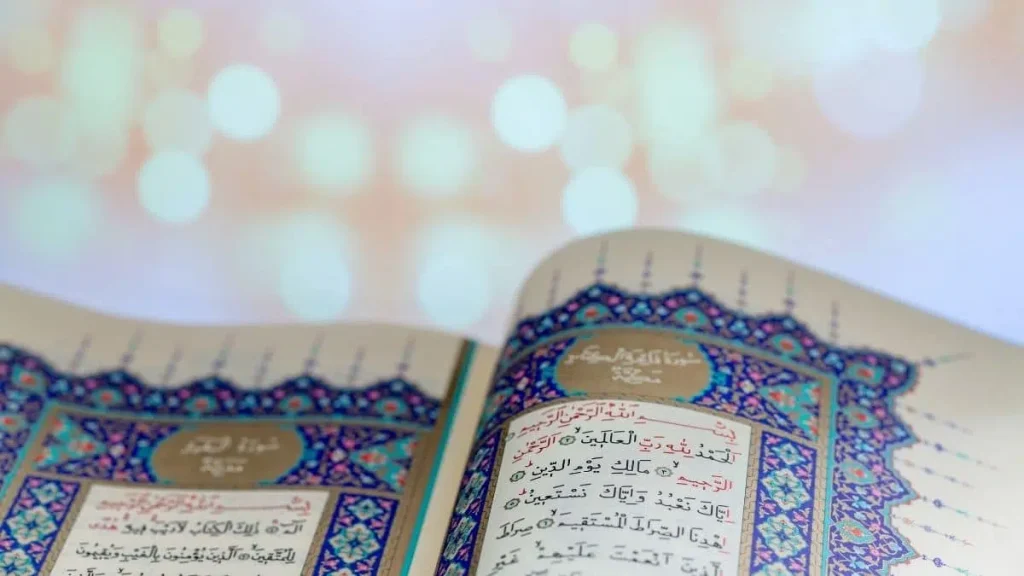 بِسْمِ اللّٰهِ الرَّحْمٰنِ الرَّحِيمِ
اَلْحَمْدُ لِلّٰهِ رَبِّ الْعَالَمِينَۙ اَلرَّحْمٰنِ
الرَّحِيمِۙ مَالِكِ يَوْمِ الدِّينِۜ
اِيَّاكَ نَعْبُدُ وَاِيَّاكَ نَسْتَعِينُۜ
اِهْدِنَا الصِّرَاطَ الْمُسْتَقِيمَۙ صِرَاطَ
الَّذِينَ اَنْعَمْتَ عَلَيْهِمْۙ غَيْرِ
سُورَةُ الْبَقَرَةِ
مَدَنِيَّةٌ
بِسْمِ اللّٰهِ الرَّحْمٰنِ الرَّحِيمِ
الٓمٓۜ ذٰلِكَ الْكِتَابُ لَا رَيْبَ فِيهِ هُدًى
لِلْمُتَّقِينَۙ اَلَّذِينَ يُؤْمِنُونَ بِالْغَيْبِ وَيُقِيمُونَ